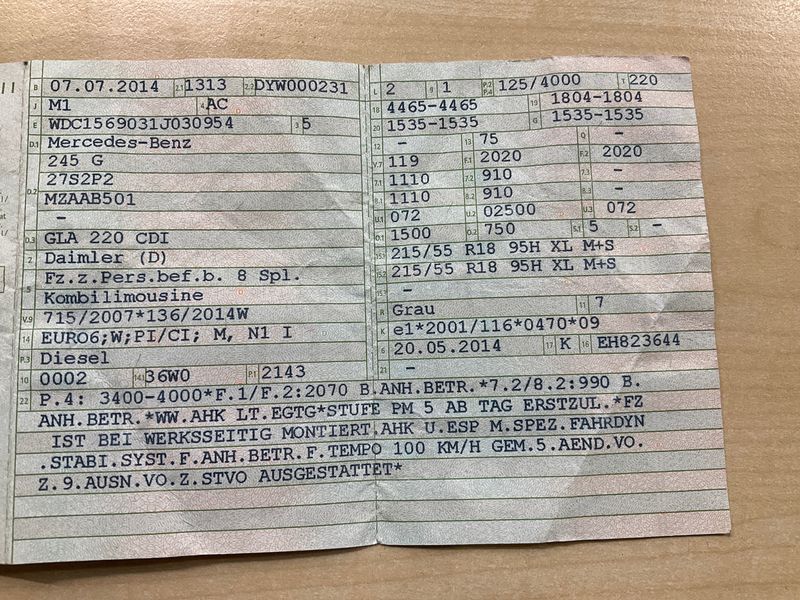 B 07.07.2014 2.1 1313 2.2 DYW000231
J M1 4 AC
E WDC1569031J030954 3 5
D.1 Mercedes-Benz
245 G
D.2 27S2P2
MZAAB501
-
D.3 GLA 220 CDI
2 Daimler (D)
5 Fz.z.Pers.bef.b. 8 Spl.
Kombilimousine
V.9 715/2007*136/2014W
14 EURO6;W;PI/CI; M, N1 I
P.3 Diesel
10 0002 14.1 36W0 P.1 2143
L 2 9 1 P.2 P.4 125/4000 T 220
18 4465-4465 19 1804-1804
20 1535-1535 G 1535-1535
12 - 13 75 Q -
V.7 119 F.1 2020 F.2 2020
7.1 1110 7.2 910 7.3 -
8.1 1110 8.2 910 8.3 -
U.1 072 U.2 02500 U.3 072
O.1 1500 O.2 750 S.1 5 S.2 -
15.1 215/55 R18 95H XL M+S
15.2 215/55 R18 95H XL M+S
15.3 -
R Grau 11 7
K e1*2001/116*0470*09
6 20.05.2014 17 K 16 EH823644
21 -
22 P.4: 3400-4000*F.1/F.2:2070 B.ANH.BETR.*7.2/8.2:990 B.
ANH.BETR.*WW.AHK LT.EGTG*STUFE PM 5 AB TAG ERSTZUL.*FZ
IST BEI WERKSSEITIG MONTIERT.AHK U.ESP M.SPEZ.FAHRDYN
.STABI.SYST.F.ANH.BETR.F.TEMPO 100 KM/H GEM.5.AEND.VO.
Z.9.AUSN.VO.Z.STVO AUSGESTATTET*